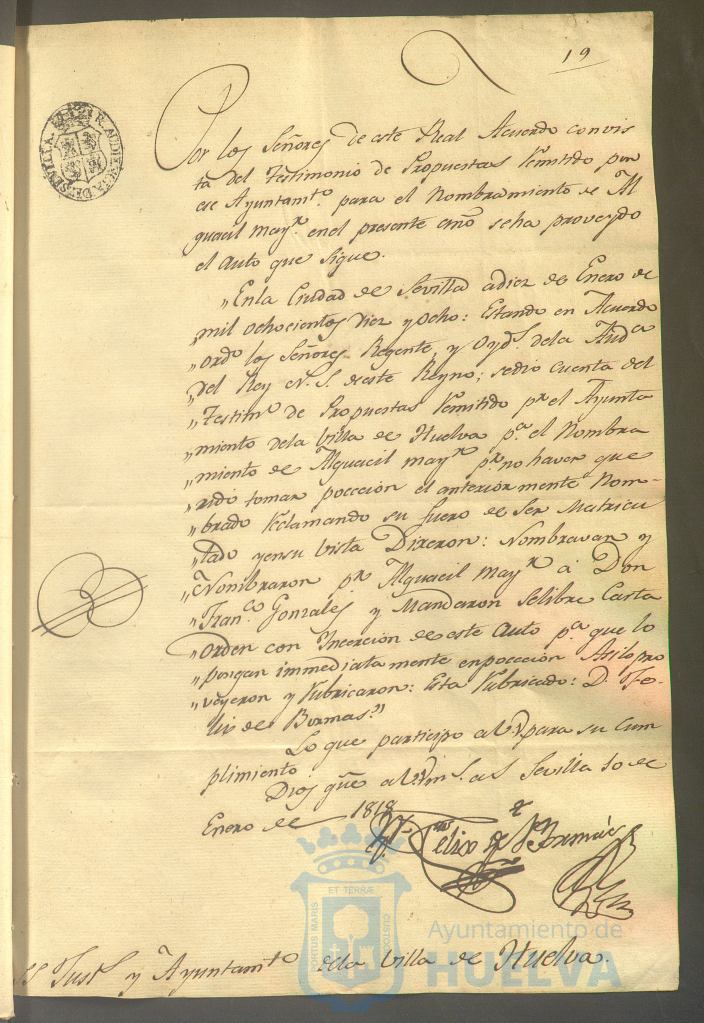 19
R. AUDIENCIA DE SEVILLA.
Por los Señores de este Real Acuerdo con vis
ta del Testimonio de Propuestas remitido por
ese Ayuntamto. para el Nombramiento de Al
guacil mayr. en el presente año seha proveydo
el auto que sigue.
„Enla Ciudad de Sevilla adiez de Enero de
„mil ochocientos diez y ocho: Estando en Acuerdo
„ordo. los Señores Regente, y Oyds. dela Auda.
„del Rey N. S. de este Reyno; sedio cuenta del
„Testimo. de Propuestas remitido pr. el Ayunta
„miento dela Villa de Huelva pa. el Nombra
„miento de Alguacil mayr. pr. no haver que
„rido tomar poccecion el anteriormente Nom-
„brado reclamando su fuero de Ser Matricu
„lado yensu vista Dixeron: Nombravan y
„Nombraron pr. Alguacil mayr. à Don
„Franco. Gonzales y Mandaron selibre Carta
„orden con Incercion de este Auto pa. que lo
„pongan immediatamente enpoccecion Asilo pro
„veyeron y rubricaron: Esta rubricado: D. Fe-
lix de Bormas."
Lo que participo al V. para su cum
plimiento.
Dios gue. al V. ms. as. Sevilla 10 de
Enero de 1818
Felix de Bormas
SS. Justa. y Ayuntamto. dela Villa de Huelva.
PORTUS MARIS ET TERRÆ CUSTODIA
Ayuntamiento de
HUELVA